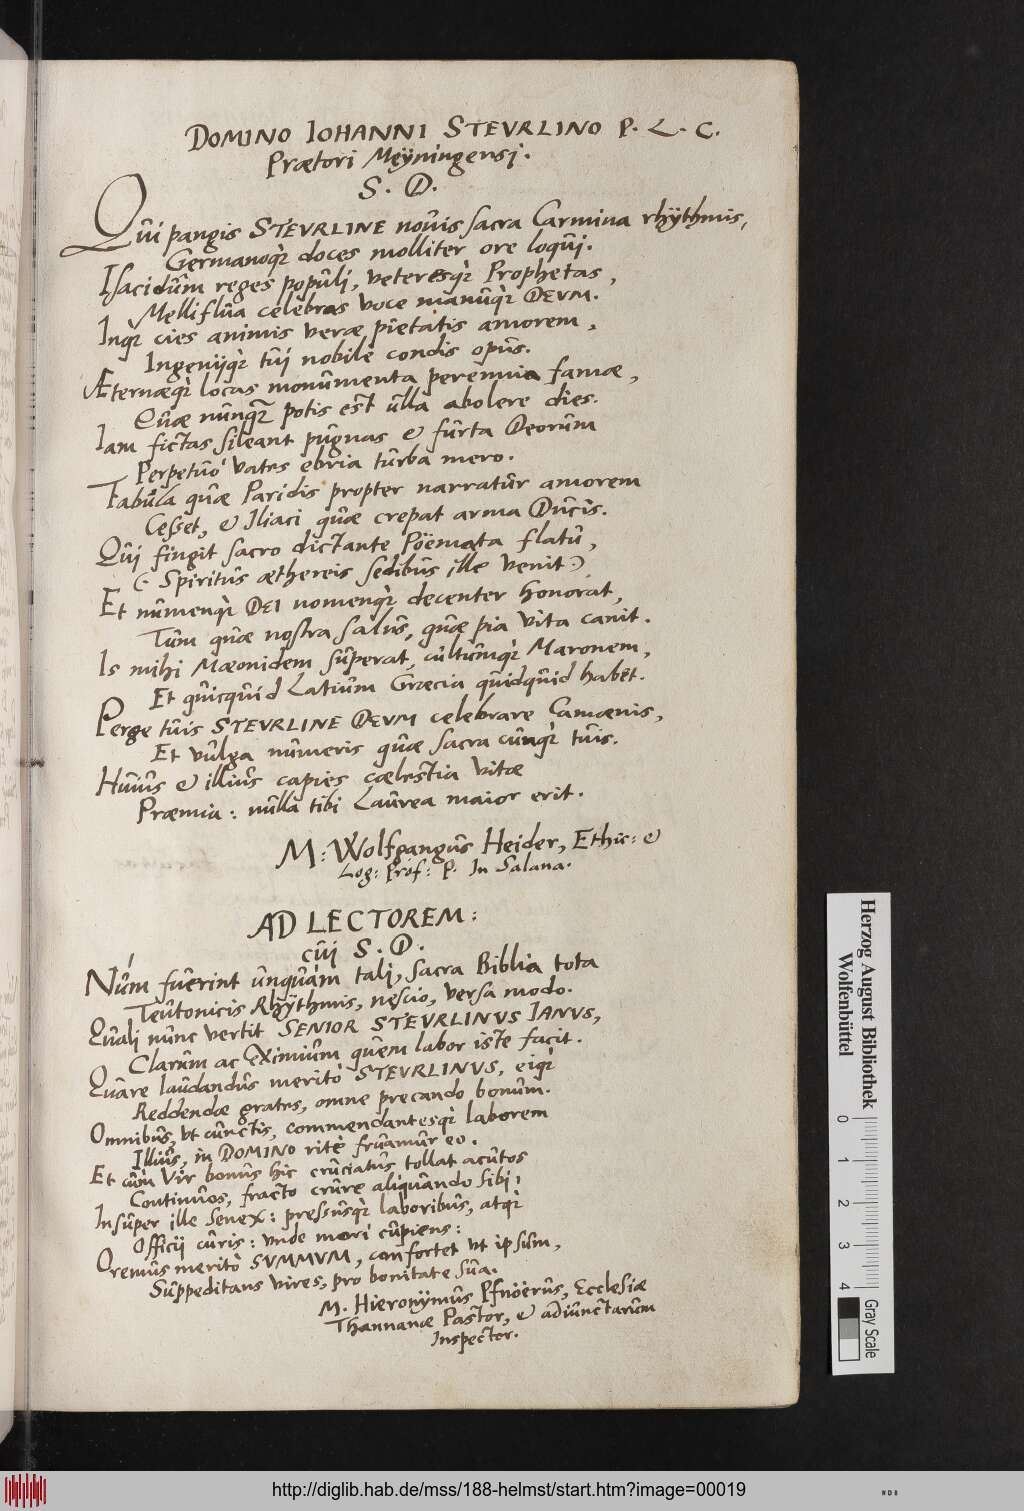 DOMINO IOHANNI STEVRLINO P. L. C.
Prætori Meÿningensj.
S. D.
Qûi pangis STEVRLINE noûis sacra Carmina rhÿthmis,
Germanoq́; doces molliter ore loqûi.
Isacidûm reges popûli, veteresq́; Prophetas,
Melliflûa celebras voce manûq́; DEVM.
Inq́; cies animis veræ pietatis amorem,
Ingenijq́; tûi nobilè condis opûs.
Æternæq́; locas monûmenta perennia famæ,
Qûæ nûnqz potis est ûlla abolere dies.
Iam fictas sileant pûgnas & fûrta Deorûm
Perpetûò vates ebria tûrba mero.
Fabûla qûæ Paridis propter narratûr amorem
Cesset, & Iliaci qûæ crepat arma Dûcis.
Qûi fingit sacro dictante Poëmata flatû,
(: Spiritûs æthereis sedibûs ille venit :)
Et nûmenq́; DEI nomenq́; decenter honorat,
Tûm qûæ nostra salûs, qûæ pia vita canit.
Is mihi Mæonidem sûperat, cûltûmq́; Maronem,
Et qûicqûid Latiûm Græcia qûidqûid habet.
Perge tûis STEVRLINE DEVM celebrare Camænis,
Et vûlga nûmeris qûæ sacra cûnq́; tûis.
Hûiûs & illiûs capies cælestia vitæ
Præmia: nûlla tibi Laûrea maior erit.
M: Wolfgangûs Heider, Ethic: &
Log: Prof: P. In Salana.
AD LECTOREM:
cûi S. D.
Nûm fûerint ûnqûàm tali, sacra Biblia tota
Teûtonicis Rhÿthmis, nescio, versa modo.
Qûali nûnc vertit SENIOR STEVRLINVS IANVS,
Clarûm ac Eximiûm qûem labor iste facit.
Qûare laûdandûs meritò STEVRLINVS, eiq́;
Reddendæ grates, omne precando bonûm.
Omnibûs, vt cûnctis, commendantesq́; laborem
Illiûs, in DOMINO ritè frûamûr eo.
Et cûm Vir bonûs hic crûciatûs tollat acûtos
Continûos, fracto crûre aliqûando sibi;
Insûper ille Senex: pressûsq́; laboribûs, atq́;
Officij cûris: vnde mori cûpiens:
Oremûs meritò SVMMVM, confortet vt ipsûm,
Sûppeditans vires, pro bonitate sûa.
M. Hieronÿmûs Pfnöerûs, Ecclesiæ
Thannanæ Pastor, & adiûnctarûm
Inspector.
Herzog August Bibliothek
Wolfenbüttel
0 1 2 3 4
Gray Scale
http://diglib.hab.de/mss/188-helmst/start.htm?image=00019